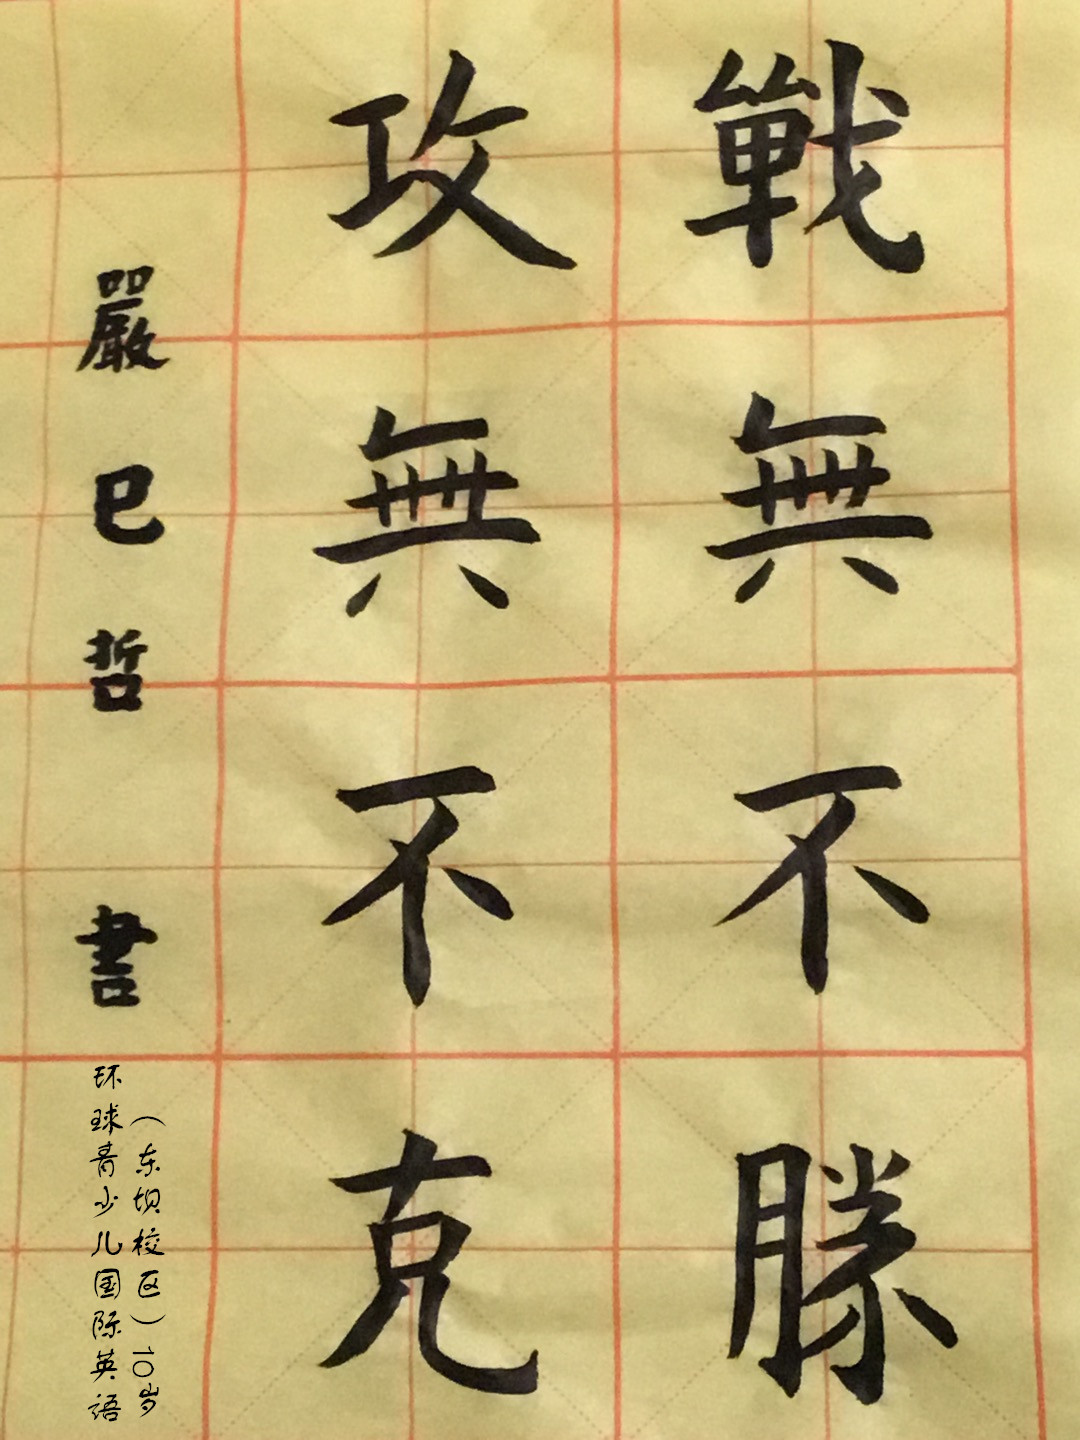 戰無不滕
攻無不克
嚴巳哲 書
环球青少儿国际英語
（东坝校区）10岁